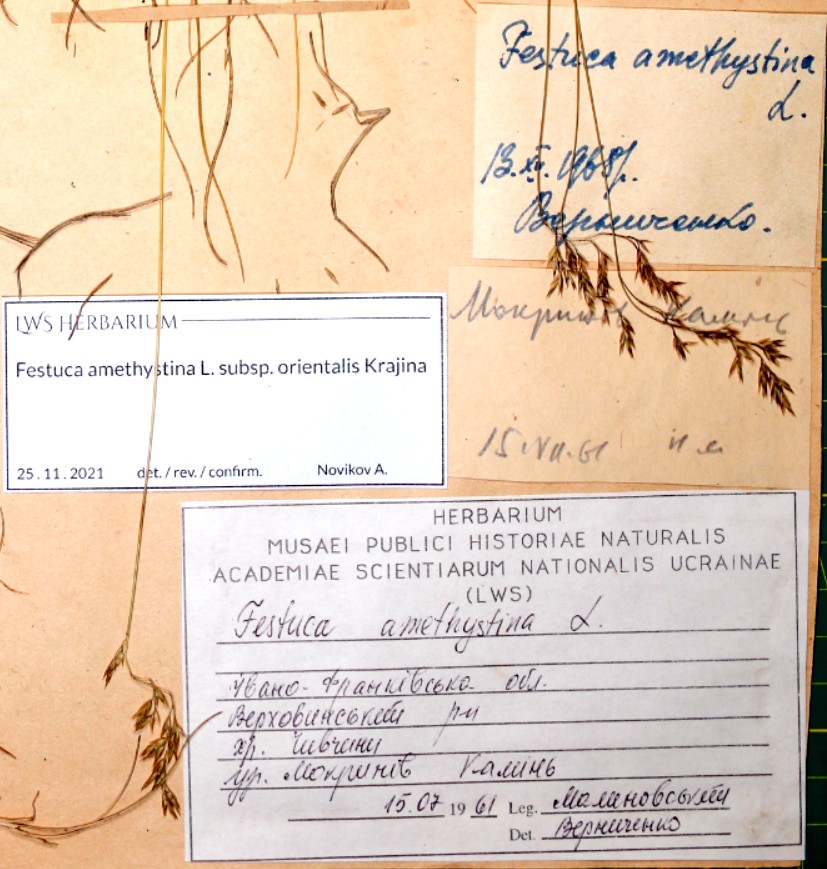 Festuca amethystina
L.
13.XII.1968р.
Верниченко.
Мокринів Камінь
15.VII.61
LWS HERBARIUM
Festuca amethystina L. subsp. orientalis Krajina
25.11.2021 det. / rev. / confirm. Novikov A.
HERBARIUM
MUSAEI PUBLICI HISTORIAE NATURALIS
ACADEMIAE SCIENTIARUM NATIONALIS UCRAINAE
(LWS)
Festuca amethystina L.
Івано-Франківська обл.
Верховинський рн
хр. Чивчини
ур. Мокринів Камінь
15.07 1961 Leg. Малиновський
Det. Верниченко